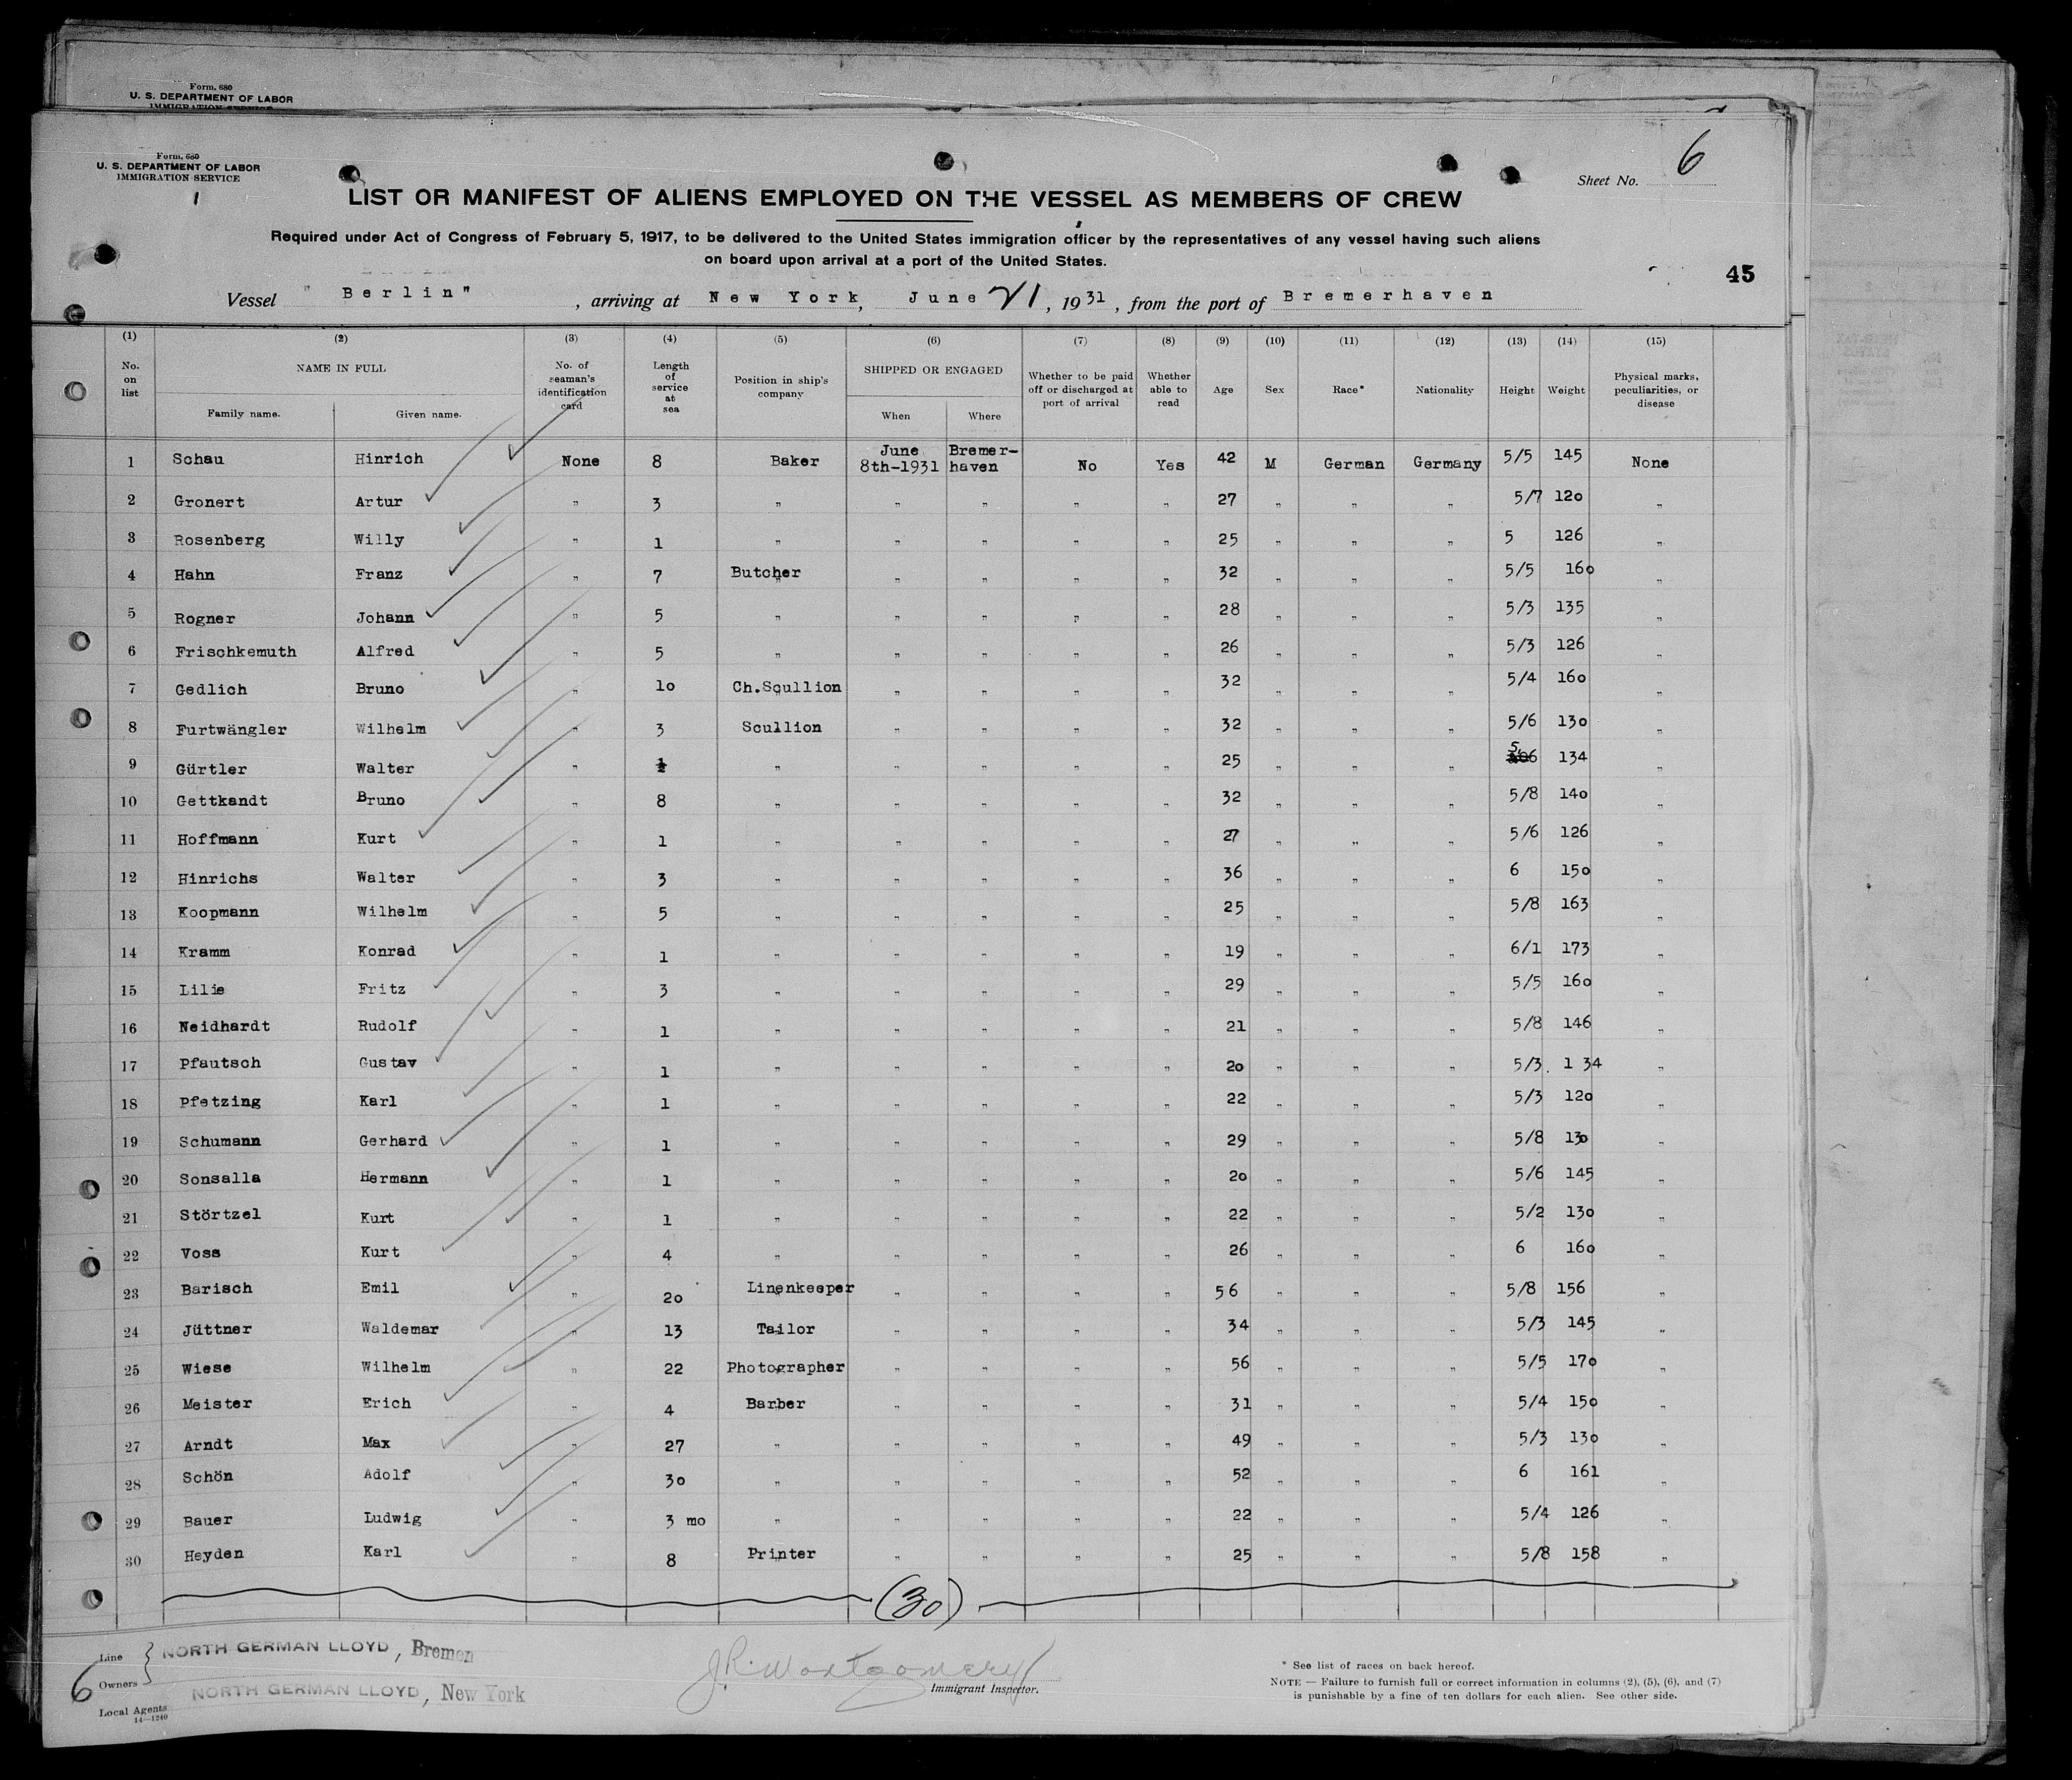 Form. 680
U. S. DEPARTMENT OF LABOR
IMMIGRATION SERVICE
Form. 680
U. S. DEPARTMENT OF LABOR
IMMIGRATION SERVICE
Sheet No. 6
LIST OR MANIFEST OF ALIENS EMPLOYED ON THE VESSEL AS MEMBERS OF CREW
Required under Act of Congress of February 5, 1917, to be delivered to the United States immigration officer by the representatives of any vessel having such aliens
on board upon arrival at a port of the United States.
45
Vessel "Berlin", arriving at New York, June 21, 1931, from the port of Bremerhaven
(1) (2) (3) (4) (5) (6) (7) (8) (9) (10) (11) (12) (13) (14) (15)
No. on list NAME IN FULL Family name. Given name. No. of seaman's identification card Length of service at sea Position in ship's company SHIPPED OR ENGAGED When Where Whether to be paid off or discharged at port of arrival Whether able to read Age Sex Race* Nationality Height Weight Physical marks, peculiarities, or disease
1 Schau Hinrich None 8 Baker June 8th-1931 Bremer-haven No Yes 42 M German Germany 5/5 145 None
2 Gronert Artur " 3 " " " " " 27 " " " 5/7 120 "
3 Rosenberg Willy " 1 " " " " " 25 " " " 5 126 "
4 Hahn Franz " 7 Butcher " " " " 32 " " " 5/5 160 "
5 Rogner Johann " 5 " " " " " 28 " " " 5/3 135 "
6 Frischkemuth Alfred " 5 " " " " " 26 " " " 5/3 126 "
7 Gedlich Bruno " 10 Ch.Scullion " " " " 32 " " " 5/4 160 "
8 Furtwängler Wilhelm " 3 Scullion " " " " 32 " " " 5/6 130 "
9 Gürtler Walter " " " " " " 25 " " " 134 "
10 Gettkandt Bruno " 8 " " " " " 32 " " " 5/8 140 "
11 Hoffmann Kurt " 1 " " " " " 27 " " " 5/6 126 "
12 Hinrichs Walter " 3 " " " " " 36 " " " 6 150 "
13 Koopmann Wilhelm " 5 " " " " " 25 " " " 5/8 163 "
14 Kramm Konrad " 1 " " " " " 19 " " " 6/1 173 "
15 Lilie Fritz " 3 " " " " " 29 " " " 5/5 160 "
16 Neidhardt Rudolf " 1 " " " " " 21 " " " 5/8 146 "
17 Pfautsch Gustav " 1 " " " " " 20 " " " 5/3. 1 34 "
18 Pfetzing Karl " 1 " " " " " 22 " " " 5/3 120 "
19 Schumann Gerhard " 1 " " " " " 29 " " " 5/8 130 "
20 Sonsalla Hermann " 1 " " " " " 20 " " " 5/6 145 "
21 Störtzel Kurt " 1 " " " " " 22 " " " 5/2 130 "
22 Voss Kurt " 4 " " " " " 26 " " " 6 160 "
23 Barisch Emil " 20 Linenkeeper " " " " 56 " " " 5/8 156 "
24 Jüttner Waldemar " 13 Tailor " " " " 34 " " " 5/3 145 "
25 Wiese Wilhelm " 22 Photographer " " " " 56 " " " 5/5 170 "
26 Meister Erich " 4 Barber " " " " 31 " " " 5/4 150 "
27 Arndt Max " 27 " " " " " 49 " " " 5/3 130 "
28 Schön Adolf " 30 " " " " " 52 " " " 6 161 "
29 Bauer Ludwig " 3 mo " " " " " 22 " " " 5/4 126 "
30 Heyden Karl " 8 Printer " " " " 25 " " " 5/8 158 "
(30)
Line
Owners } NORTH GERMAN LLOYD, Bremen
6
Local Agents NORTH GERMAN LLOYD, New York
14—1240
J.R. Montgomery
Immigrant Inspector.
* See list of races on back hereof.
NOTE — Failure to furnish full or correct information in columns (2), (5), (6), and (7)
is punishable by a fine of ten dollars for each alien. See other side.